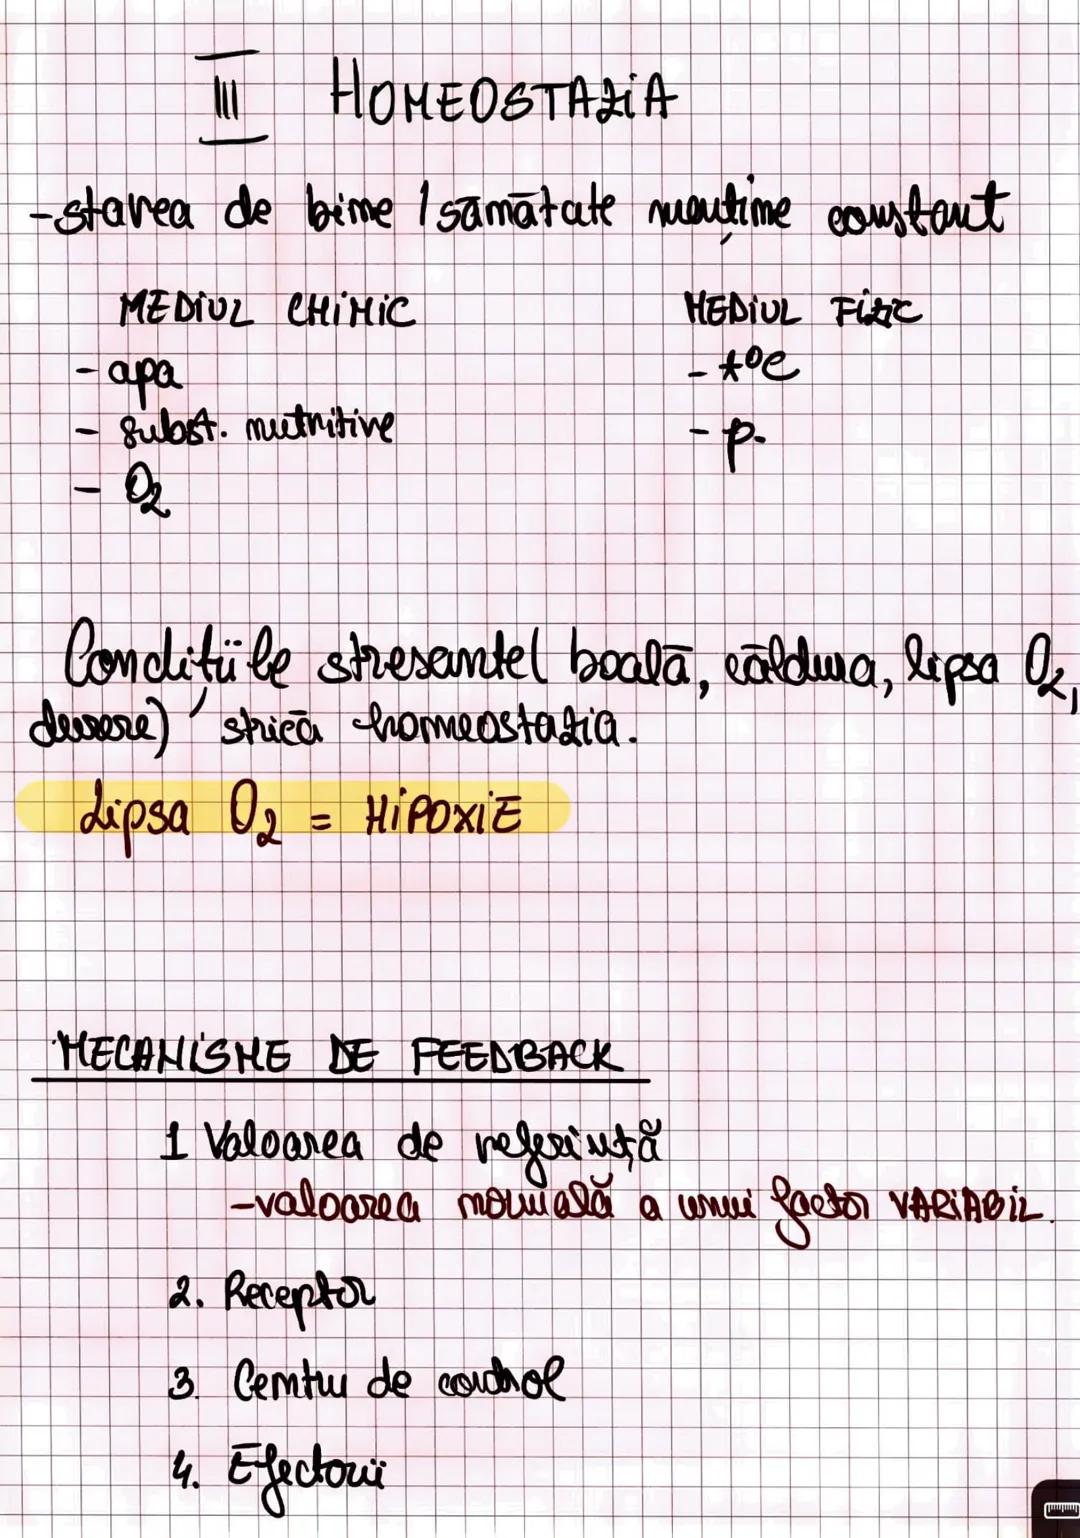 III HOMEOSTAZIA
-starea de bine / sănătate menține constant
MEDIUL CHIMIC MEDIUL FIZIC
- apa - t°C
- subst. nutritive - p.
- O2
Condițiile stresante( boală, căldura, lipsa O2,
durere) strică homeostazia.
Lipsa O2 = HIPOXIE
MECANISME DE FEEDBACK
1 Valoarea de referință
-valoarea normală a unui factor VARIABIL.
2. Receptor
3. Centru de control
4. Efectorii